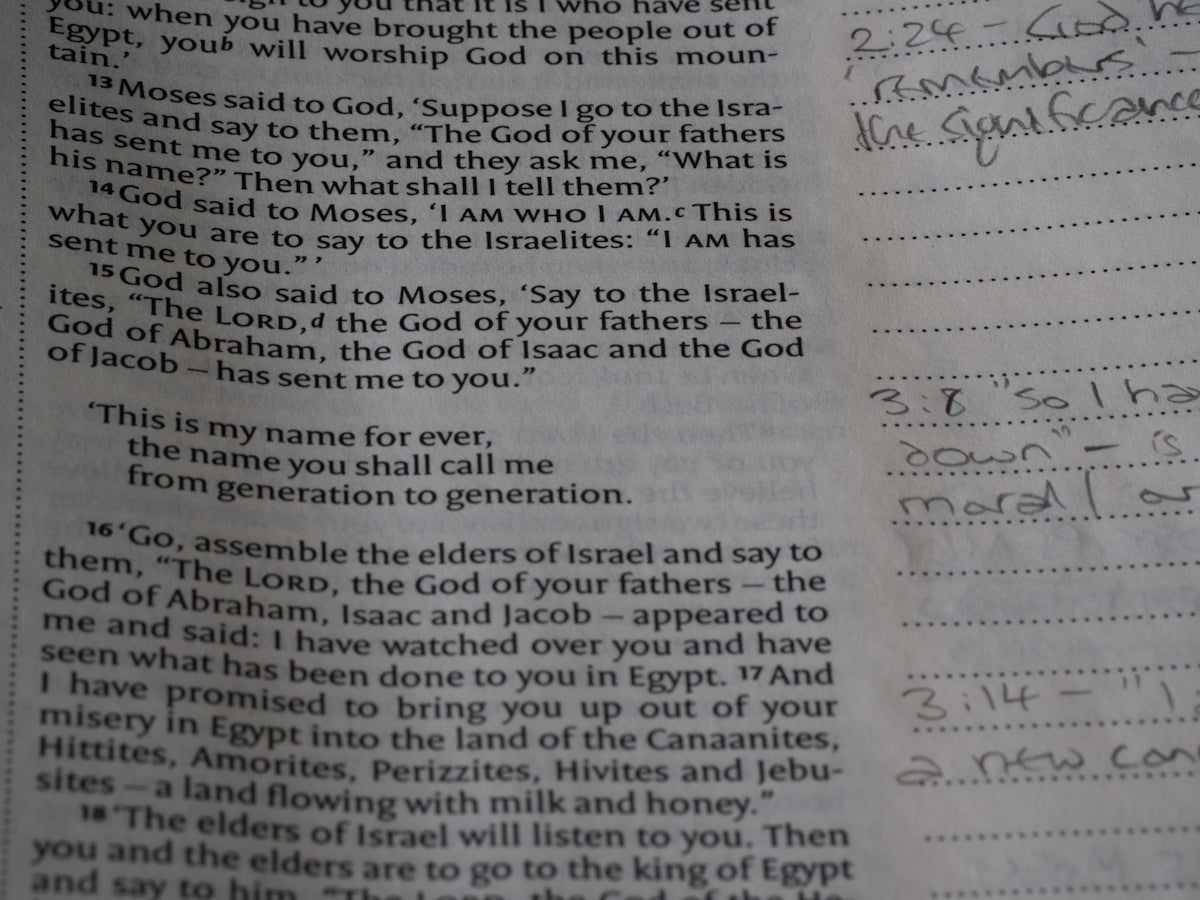 sign to you that it is I who have sent
you: when you have brought the people out of
Egypt, youb will worship God on this moun-
tain.’
13 Moses said to God, ‘Suppose I go to the Isra-
elites and say to them, “The God of your fathers
has sent me to you,” and they ask me, “What is
his name?” Then what shall I tell them?’
14 God said to Moses, ‘I AM WHO I AM.c This is
what you are to say to the Israelites: “I AM has
sent me to you.” ’
15 God also said to Moses, ‘Say to the Israel-
ites, “The LORD,d the God of your fathers – the
God of Abraham, the God of Isaac and the God
of Jacob – has sent me to you.”
‘This is my name for ever,
the name you shall call me
from generation to generation.
16 ‘Go, assemble the elders of Israel and say to
them, “The LORD, the God of your fathers – the
God of Abraham, Isaac and Jacob – appeared to
me and said: I have watched over you and have
seen what has been done to you in Egypt. 17 And
I have promised to bring you up out of your
misery in Egypt into the land of the Canaanites,
Hittites, Amorites, Perizzites, Hivites and Jebu-
sites – a land flowing with milk and honey.”
18 ‘The elders of Israel will listen to you. Then
you and the elders are to go to the king of Egypt
and say to him, “The LORD, the God of the He-
2:24 – God he
‘remembers’ –
the significance
3:8 “So I ha
down” – is
moral / or
3:14 – “I
a new con